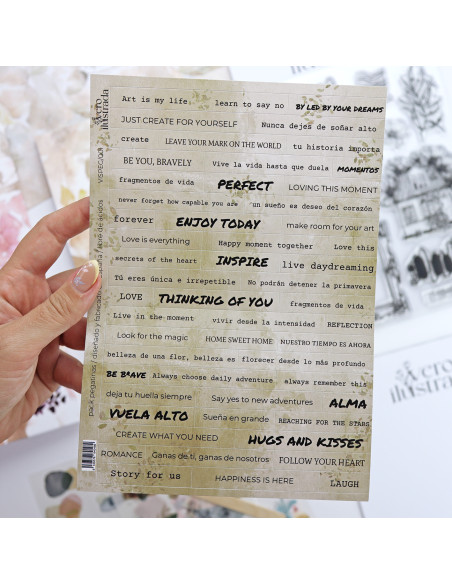 Art is my life. learn to say no BY LED BY YOUR DREAMS
JUST CREATE FOR YOURSELF Nunca dejes de soñar alto
create LEAVE YOUR MARK ON THE WORLD tu historia importa
BE YOU, BRAVELY Vive la vida hasta que duela MOMENTOS
fragmentos de vida PERFECT LOVING THIS MOMENT
never forget how capable you are un sueño es deseo del corazón
forever ENJOY TODAY make room for your art
Love is everything Happy moment together Love this
secrets of the heart INSPIRE live daydreaming
Tú eres única e irrepetible No podrán detener la primavera
LOVE THINKING OF YOU fragmentos de vida
Live in the moment vivir desde la intensidad REFLECTION
Look for the magic HOME SWEET HOME NUESTRO TIEMPO ES AHORA
belleza de una flor, belleza es florecer desde lo más profundo
BE BRAVE Always choose daily adventure always remember this
deja tu huella siempre Say yes to new adventures ALMA
VUELA ALTO Sueña en grande REACHING FOR THE STARS
CREATE WHAT YOU NEED HUGS AND KISSES
ROMANCE Ganas de ti, ganas de nosotros FOLLOW YOUR HEART
Story for us HAPPINESS IS HERE LAUGH
acro
ilustrada
pack pegatinas / diseñado y fabricado
libre de ácidos
acro
ilustrada